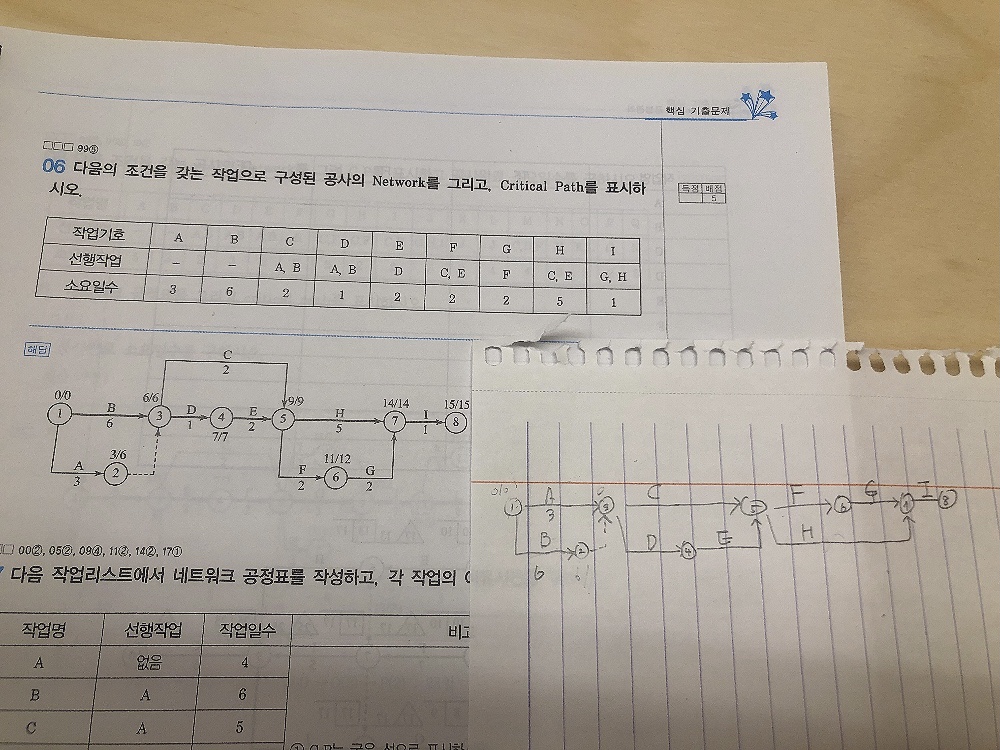 핵심 기출문제
99⑤
06 다음의 조건을 갖는 작업으로 구성된 공사의 Network를 그리고, Critical Path를 표시하
시오.
득점 배점
5
작업기호 A B C D E F G H I
선행작업 - - A, B A, B D C, E F C, E G, H
소요일수 3 6 2 1 2 2 2 5 1
해답
C
2
0/0 6/6 9/9 14/14 15/15
1 B 3 D 4 E 5 H 7 I 8
6 1 2 5 1
7/7
A 3/6 2
3
F 11/12 6 G
2 2
0/0
1 A 3 C 5 F 6 G 7 I 8
3
B 2 D 4 E H
6
00②, 05②, 09④, 11②, 14②, 17①
다음 작업리스트에서 네트워크 공정표를 작성하고, 각 작업의
작업명 선행작업 작업일수 비고
A 없음 4
B A 6
C A 5